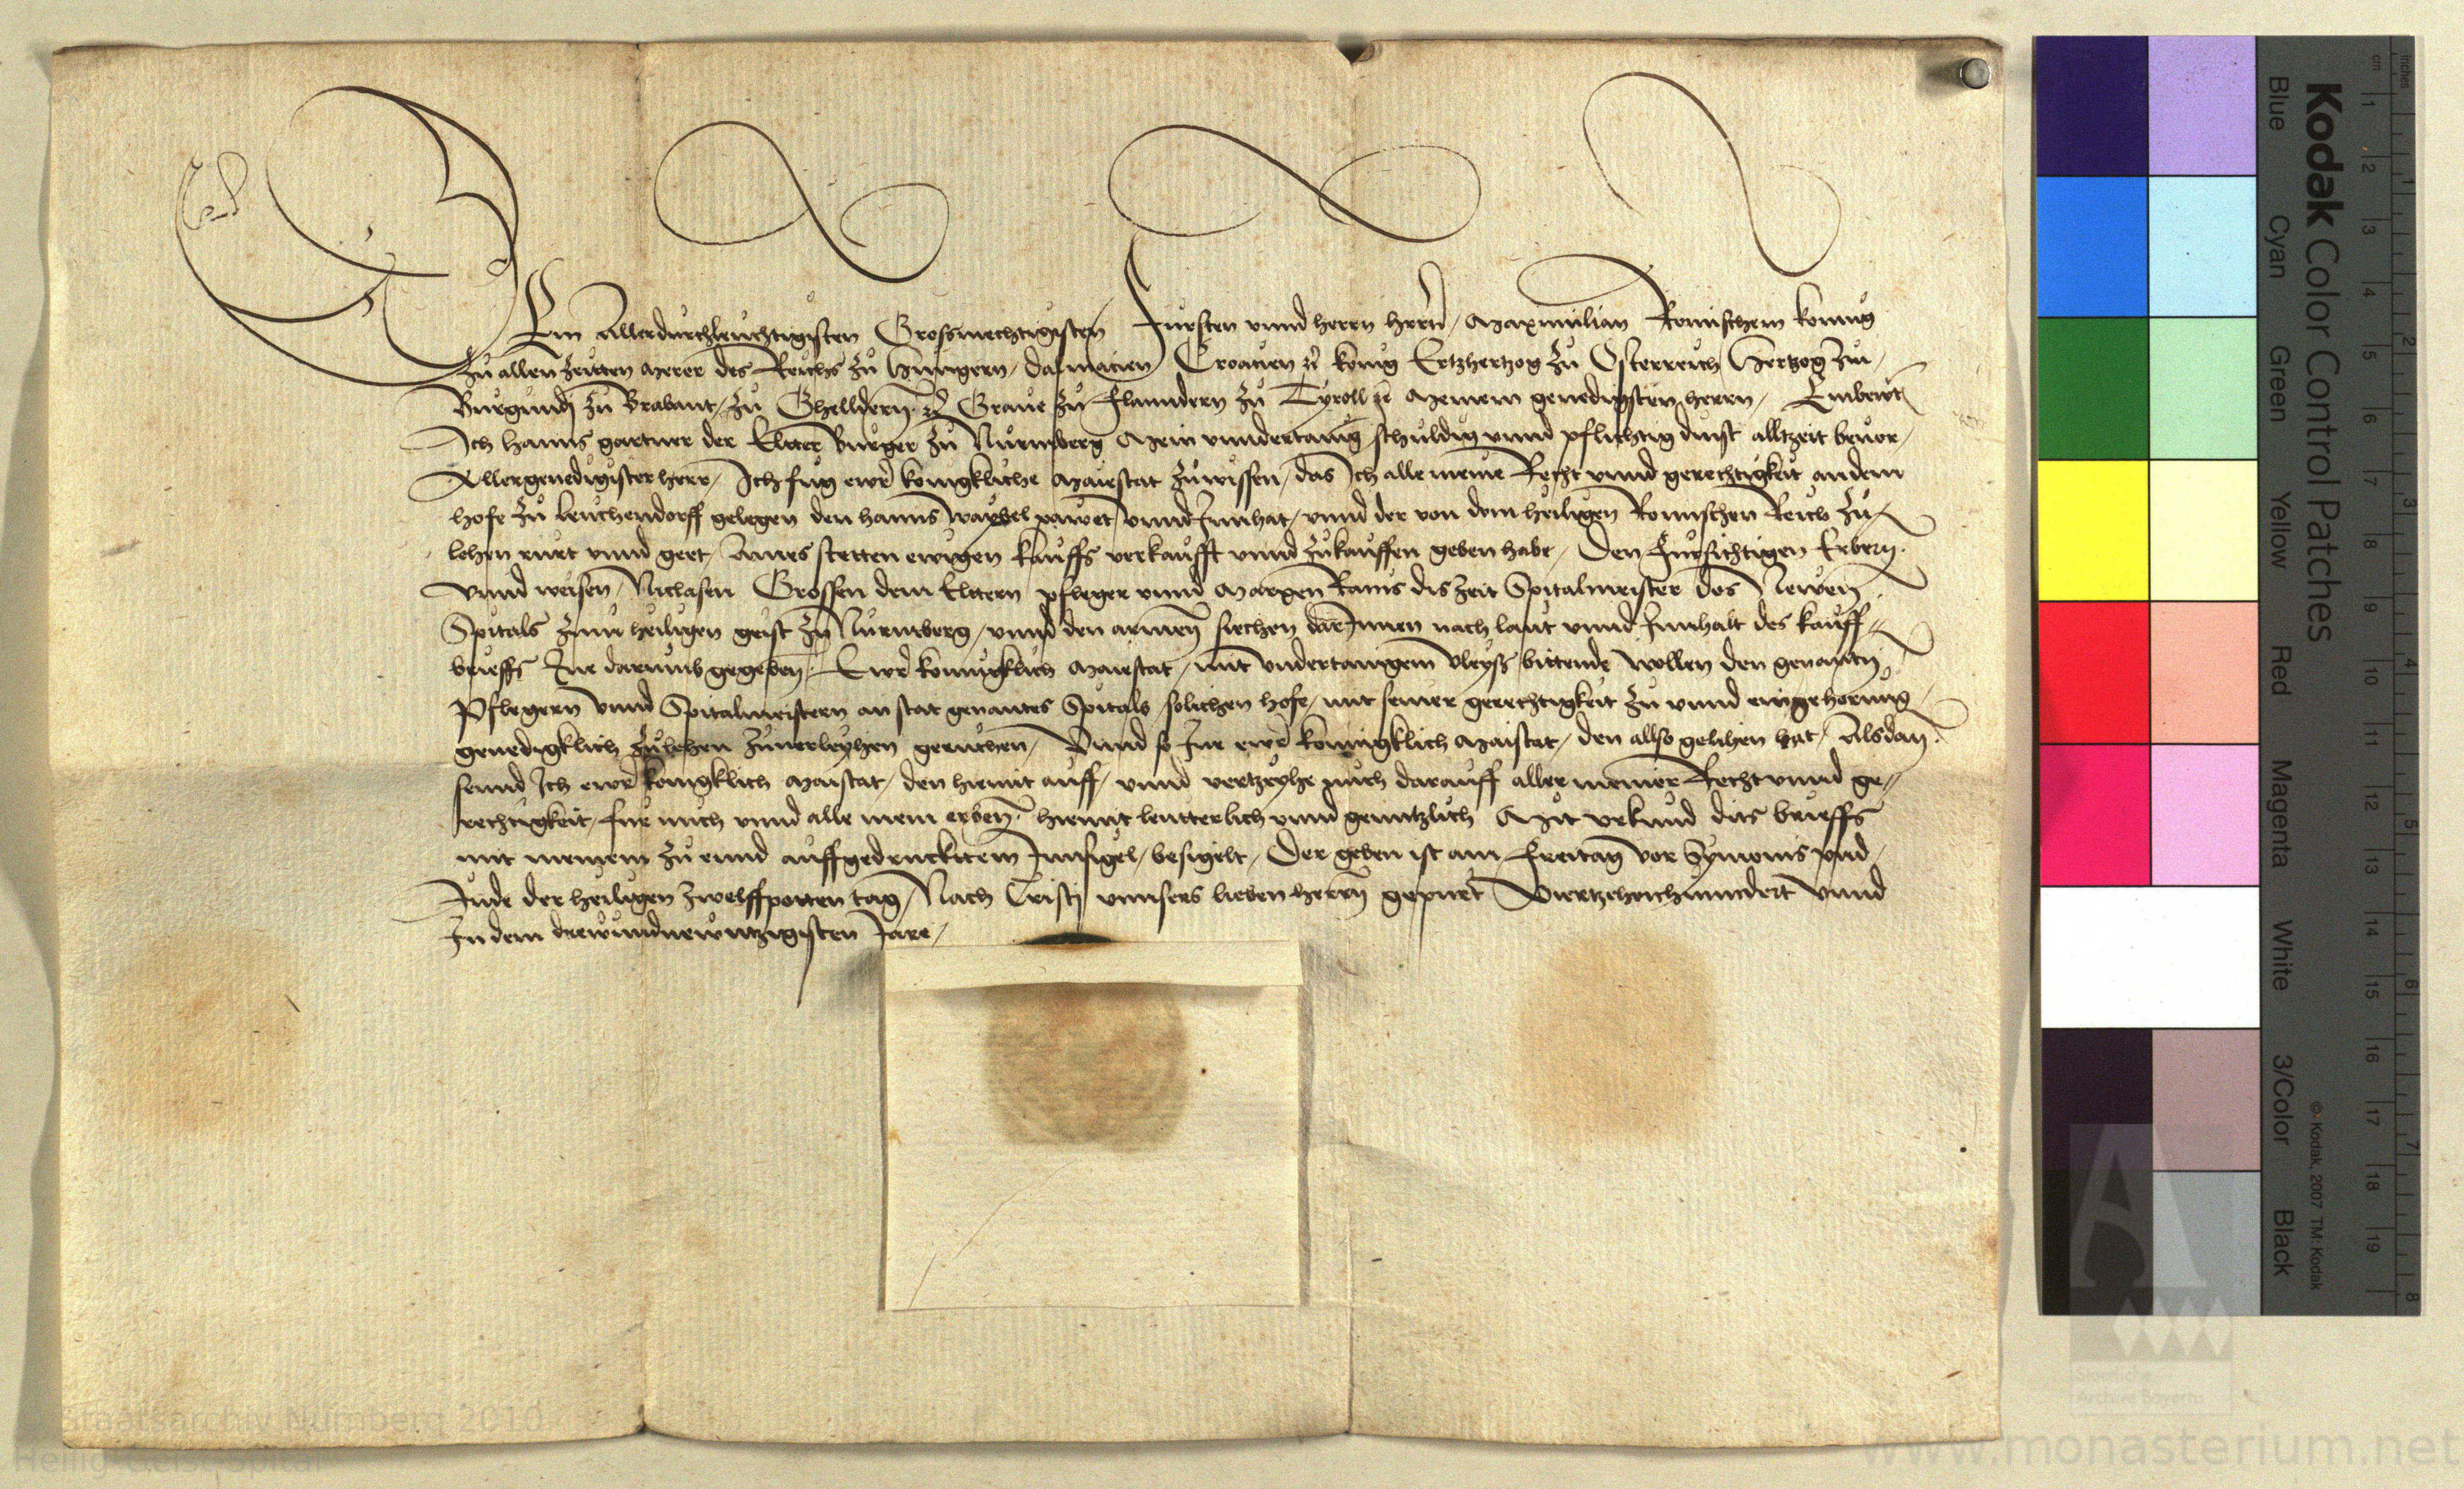 Dem Allerdurchleuchtigisten Grossmechtigisten Fursten vnnd herrn herrn / Maxmilian Romischem konng
zu allen zeitten merer des Reichs zu hungern / dalmacien Croacien zc konig Ertzhertzog zu Osterreich Hertzog zu /
Burgundj zu Brabant / zu Ghelldern zc Graue zu Flanndern zu Tyroll zc Meinem genedigisten herrn / Embewt
Ich hanns gartner der Elter Burger zu Nurmberg Mein vnndertanig schuldig vnnd pflichtig dinst alltzeit beuor /
Allergenedigister herr / Ich fug ewr konigkliche Maiestat zuwissen / das Ich alle meine Recht vnnd gerechtigkeit an dem
hofe zu leuchendorff gelegen den hanns waybel pawet / vnnd Innhat / vnnd der von dem heiligen Romischen Reich zu
lehen rurt vnnd geet / Aines stetten ewigen kauffs verkaufft vnnd zukauffen geben habe / Den Fursichtigen Erbern
vnnd weisen / Niclasen Grossen dem Eltern pfleger vnnd Marxen Rans dis zeit Spitalmeister des Newen
Spitals zum heiligen geist zu Nurmberg / vnnd den armen siechen darInnen nach laut vnnd Innhalt des kauff
brieffs Ine darumb gegeben / Ewr konnigklich Maiestat / mit vndertanigem vleyss bittende wollen den genanten
Pflegern vnnd Spitalmeistern an stat genantes Spitals / solichen hofe / mit seiner gerechtigkeit zu vnnd eingehorung /
genedigklich zulehen zuuerleyhen geruchen / Vnnd so Ine ewr konnigklich Maistat / den allso gelihen hat / Alsdan
sennd Ich ewr konigklich Maistat / den hiemit auff / vnnd vertzeyhe mich darauff aller meiner Recht vnnd ge
rechtigkeit / fur mich vnnd alle mein erben / hiemit lautterlich vnnd genntzlich Mit vrkund dits brieffs
mit meinem zu ennd auffgedrucktem Innsigel / besigelt / Der geben ist am Freitag vor Symonis vnd /
Jude der heiligen zwelffpotten tag / Nach Cristj vnnsers lieben herrn gepurt Viertzehenhunndert vnnd
In dem drewundnewntzigisten Jare /
Kodak Color Control Patches
Blue Cyan Green Yellow Red Magenta White 3/Color Black
© Kodak, 2007 TM: Kodak
cm 1 2 3 4 5 6 7 8 9 10 11 12 13 14 15 16 17 18 19
Inches 1 2 3 4 5 6 7 8
Staatliche
Archive Bayerns
Staatsarchiv Nürnberg 2010
Heilig-Geist-Spital
www.monasterium.net